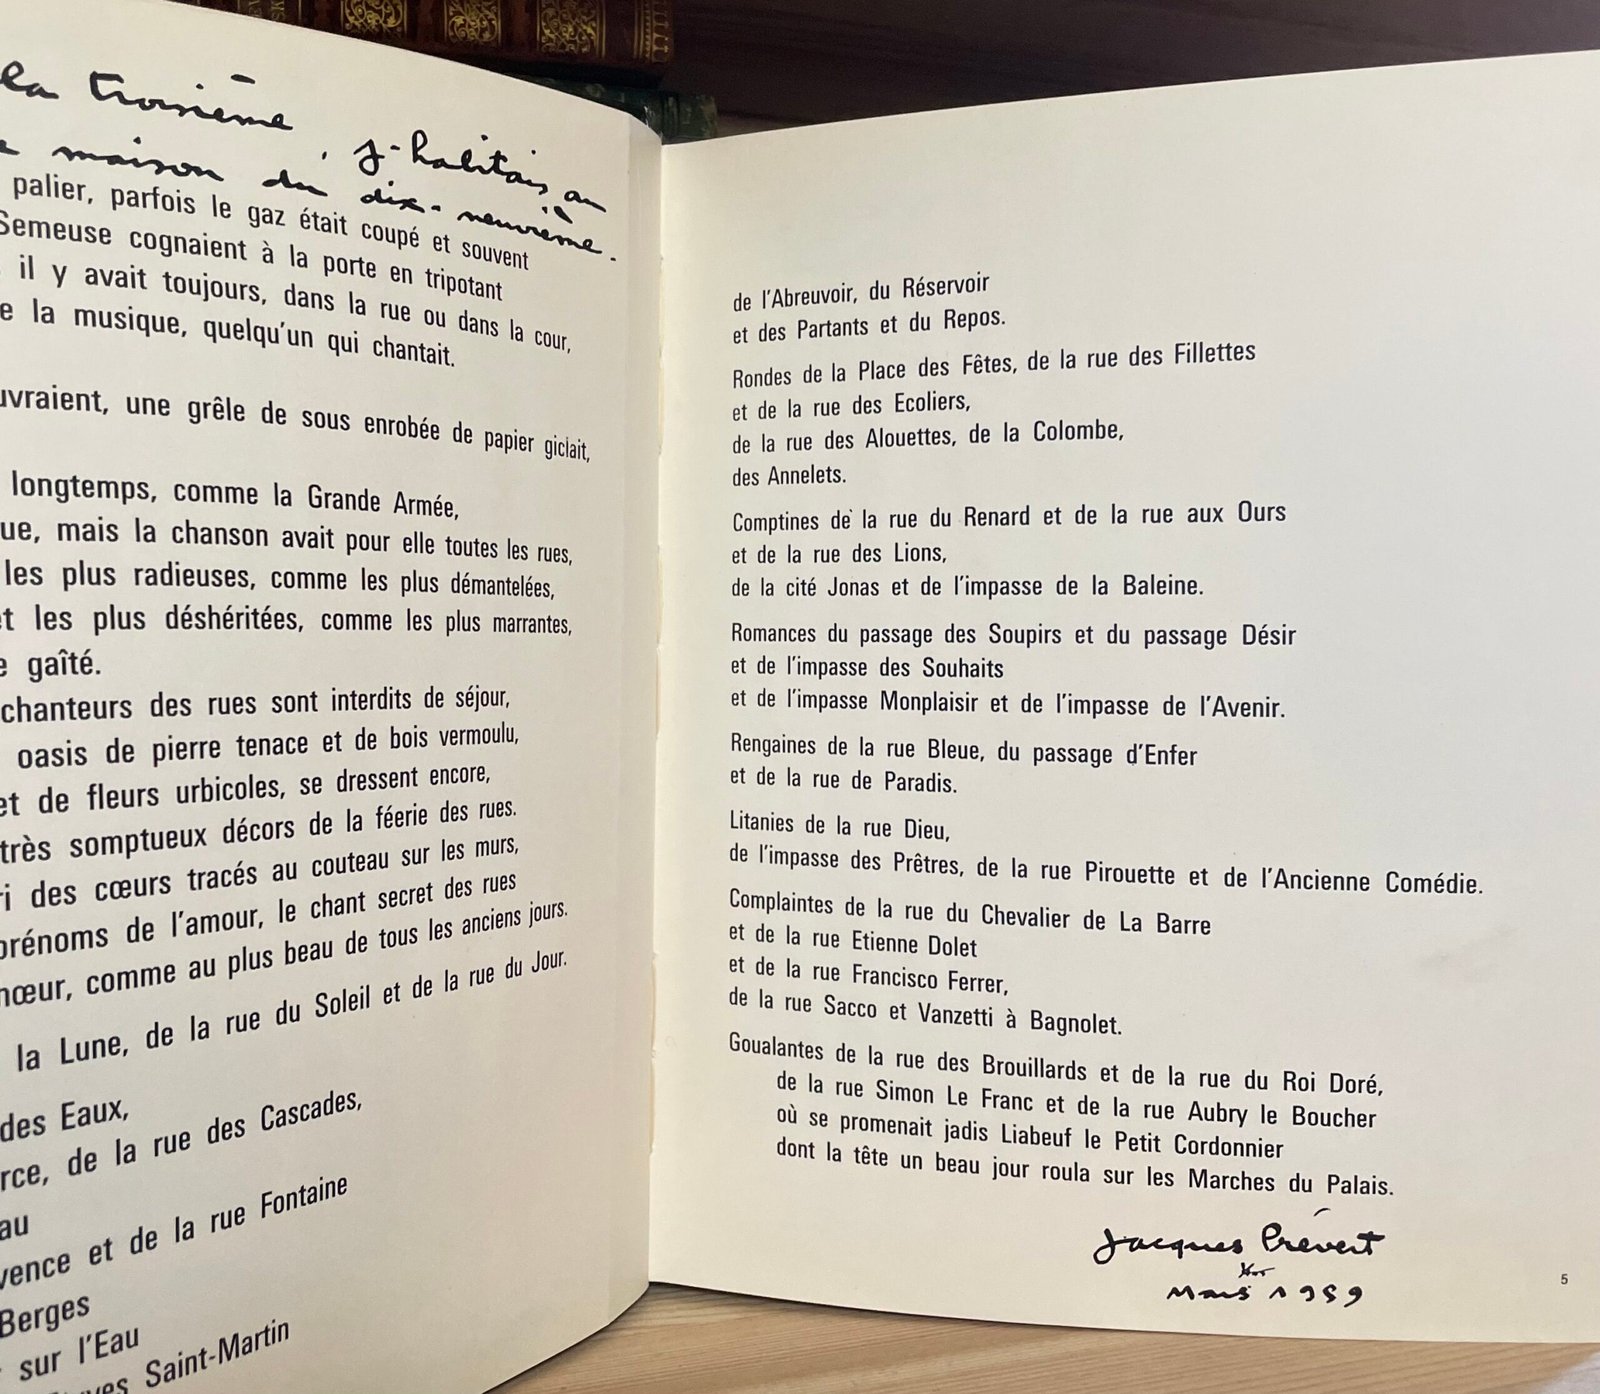 la troisième, j'habitais au
maison du dix-neuvième.
palier, parfois le gaz était coupé et souvent
Semeuse cognaient à la porte en tripotant
il y avait toujours, dans la rue ou dans la cour,
e la musique, quelqu'un qui chantait.
uvraient, une grêle de sous enrobée de papier giclait,
longtemps, comme la Grande Armée,
ue, mais la chanson avait pour elle toutes les rues,
les plus radieuses, comme les plus démantelées,
t les plus déshéritées, comme les plus marrantes,
e gaîté.
chanteurs des rues sont interdits de séjour,
oasis de pierre tenace et de bois vermoulu,
et de fleurs urbicoles, se dressent encore,
très somptueux décors de la féerie des rues.
ri des cœurs tracés au couteau sur les murs,
prénoms de l'amour, le chant secret des rues
nœur, comme au plus beau de tous les anciens jours.
la Lune, de la rue du Soleil et de la rue du Jour.
des Eaux,
rce, de la rue des Cascades,
au
vence et de la rue Fontaine
Berges
sur l'Eau
uves Saint-Martin
de l'Abreuvoir, du Réservoir
et des Partants et du Repos.
Rondes de la Place des Fêtes, de la rue des Fillettes
et de la rue des Ecoliers,
de la rue des Alouettes, de la Colombe,
des Annelets.
Comptines de la rue du Renard et de la rue aux Ours
et de la rue des Lions,
de la cité Jonas et de l'impasse de la Baleine.
Romances du passage des Soupirs et du passage Désir
et de l'impasse des Souhaits
et de l'impasse Monplaisir et de l'impasse de l'Avenir.
Rengaines de la rue Bleue, du passage d'Enfer
et de la rue de Paradis.
Litanies de la rue Dieu,
de l'impasse des Prêtres, de la rue Pirouette et de l'Ancienne Comédie.
Complaintes de la rue du Chevalier de La Barre
et de la rue Etienne Dolet
et de la rue Francisco Ferrer,
de la rue Sacco et Vanzetti à Bagnolet.
Goualantes de la rue des Brouillards et de la rue du Roi Doré,
de la rue Simon Le Franc et de la rue Aubry le Boucher
où se promenait jadis Liabeuf le Petit Cordonnier
dont la tête un beau jour roula sur les Marches du Palais.
Jacques Prévert
Mars 1959
5